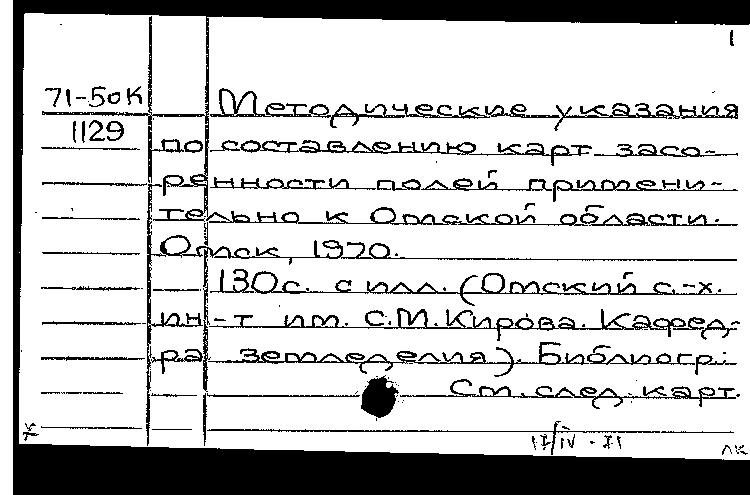 1
71-50К Методические указания
1129 по составлению карт засо-
ренности полей примени-
тельно к Омской области.
Омск, 1970.
130с. с илл. (Омский с.-х.
ин-т им. С.М.Кирова. Кафед-
ра земледелия). Библиогр.:
См. след. карт.
17/IV-71
лк